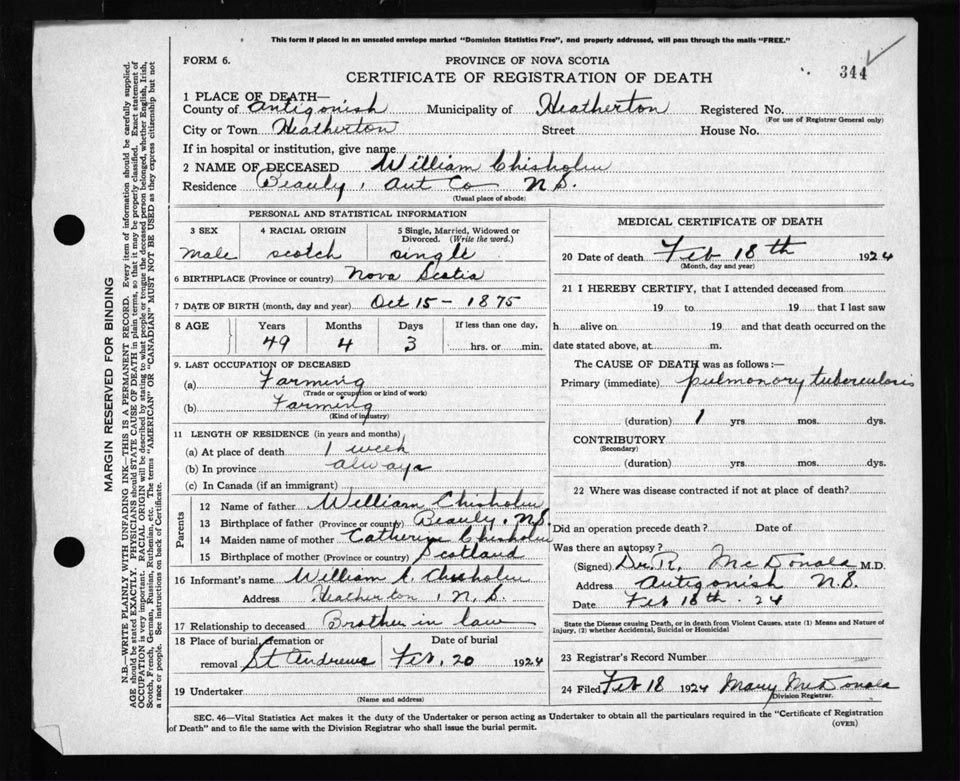 This form if placed in an unsealed envelope marked "Dominion Statistics Free", and properly addressed, will pass through the mails "FREE."
FORM 6.
PROVINCE OF NOVA SCOTIA
CERTIFICATE OF REGISTRATION OF DEATH
344
1 PLACE OF DEATH—
County of Antigonish Municipality of Heatherton Registered No.
(For use of Registrar General only)
City or Town Heatherton Street House No.
If in hospital or institution, give name
2 NAME OF DECEASED William Chisholm
Residence Beauly, Ant Co N S.
(Usual place of abode)
PERSONAL AND STATISTICAL INFORMATION
3 SEX 4 RACIAL ORIGIN 5 Single, Married, Widowed or Divorced. (Write the word.)
male scotch single
6 BIRTHPLACE (Province or country) Nova Scotia
7 DATE OF BIRTH (month, day and year) Oct 15 - 1875
8 AGE Years Months Days If less than one day,
49 4 3 hrs. or min.
9. LAST OCCUPATION OF DECEASED
(a) Farming
(Trade or occupation or kind of work)
(b) Farming
(Kind of industry)
11 LENGTH OF RESIDENCE (in years and months)
(a) At place of death 1 week
(b) In province always
(c) In Canada (if an immigrant)
Parents
12 Name of father William Chisholm
13 Birthplace of father (Province or country) Beauly, N.S.
14 Maiden name of mother Catherine Chisholm
15 Birthplace of mother (Province or country) Scotland
16 Informant's name William A. Chisholm
Address Heatherton, N. S.
17 Relationship to deceased Brother in law
18 Place of burial, cremation or removal St Andrews Date of burial Feb. 20 1924
19 Undertaker
(Name and address)
MEDICAL CERTIFICATE OF DEATH
20 Date of death Feb 18th 1924
(Month, day and year)
21 I HEREBY CERTIFY, that I attended deceased from
19 to 19 that I last saw
h alive on 19 and that death occurred on the
date stated above, at m.
The CAUSE OF DEATH was as follows:—
Primary (immediate) pulmonary tuberculosis
(duration) 1 yrs mos. dys.
CONTRIBUTORY
(Secondary)
(duration) yrs mos. dys.
22 Where was disease contracted if not at place of death?
Did an operation precede death? Date of
Was there an autopsy?
(Signed) Dr. R. McDonald M.D.
Address Antigonish N.S.
Date Feb 18th - 24
State the Disease causing Death, or in death from Violent Causes, state (1) Means and Nature of
Injury, (2) whether Accidental, Suicidal or Homicidal
23 Registrar's Record Number
24 Filed Feb 18 1924 Mary McDonald
Division Registrar.
SEC. 46—Vital Statistics Act makes it the duty of the Undertaker or person acting as Undertaker to obtain all the particulars required in the "Certificate of Registration
of Death" and to file the same with the Division Registrar who shall issue the burial permit.
(OVER)
MARGIN RESERVED FOR BINDING
N.B.—WRITE PLAINLY WITH UNFADING INK—THIS IS A PERMANENT RECORD. Every item of information should be carefully supplied.
AGE should be stated EXACTLY. PHYSICIANS should STATE CAUSE OF DEATH in plain terms, so that it may be properly classified. Exact statement of
OCCUPATION is very important. RACIAL ORIGIN will be described by stating to what people or tongue the deceased person belonged, whether English, Irish,
Scotch, French, German, Russian, Ruthenian, etc. The terms "AMERICAN" OR "CANADIAN" MUST NOT BE USED as they express citizenship but not
a race or people. See instructions on back of Certificate.